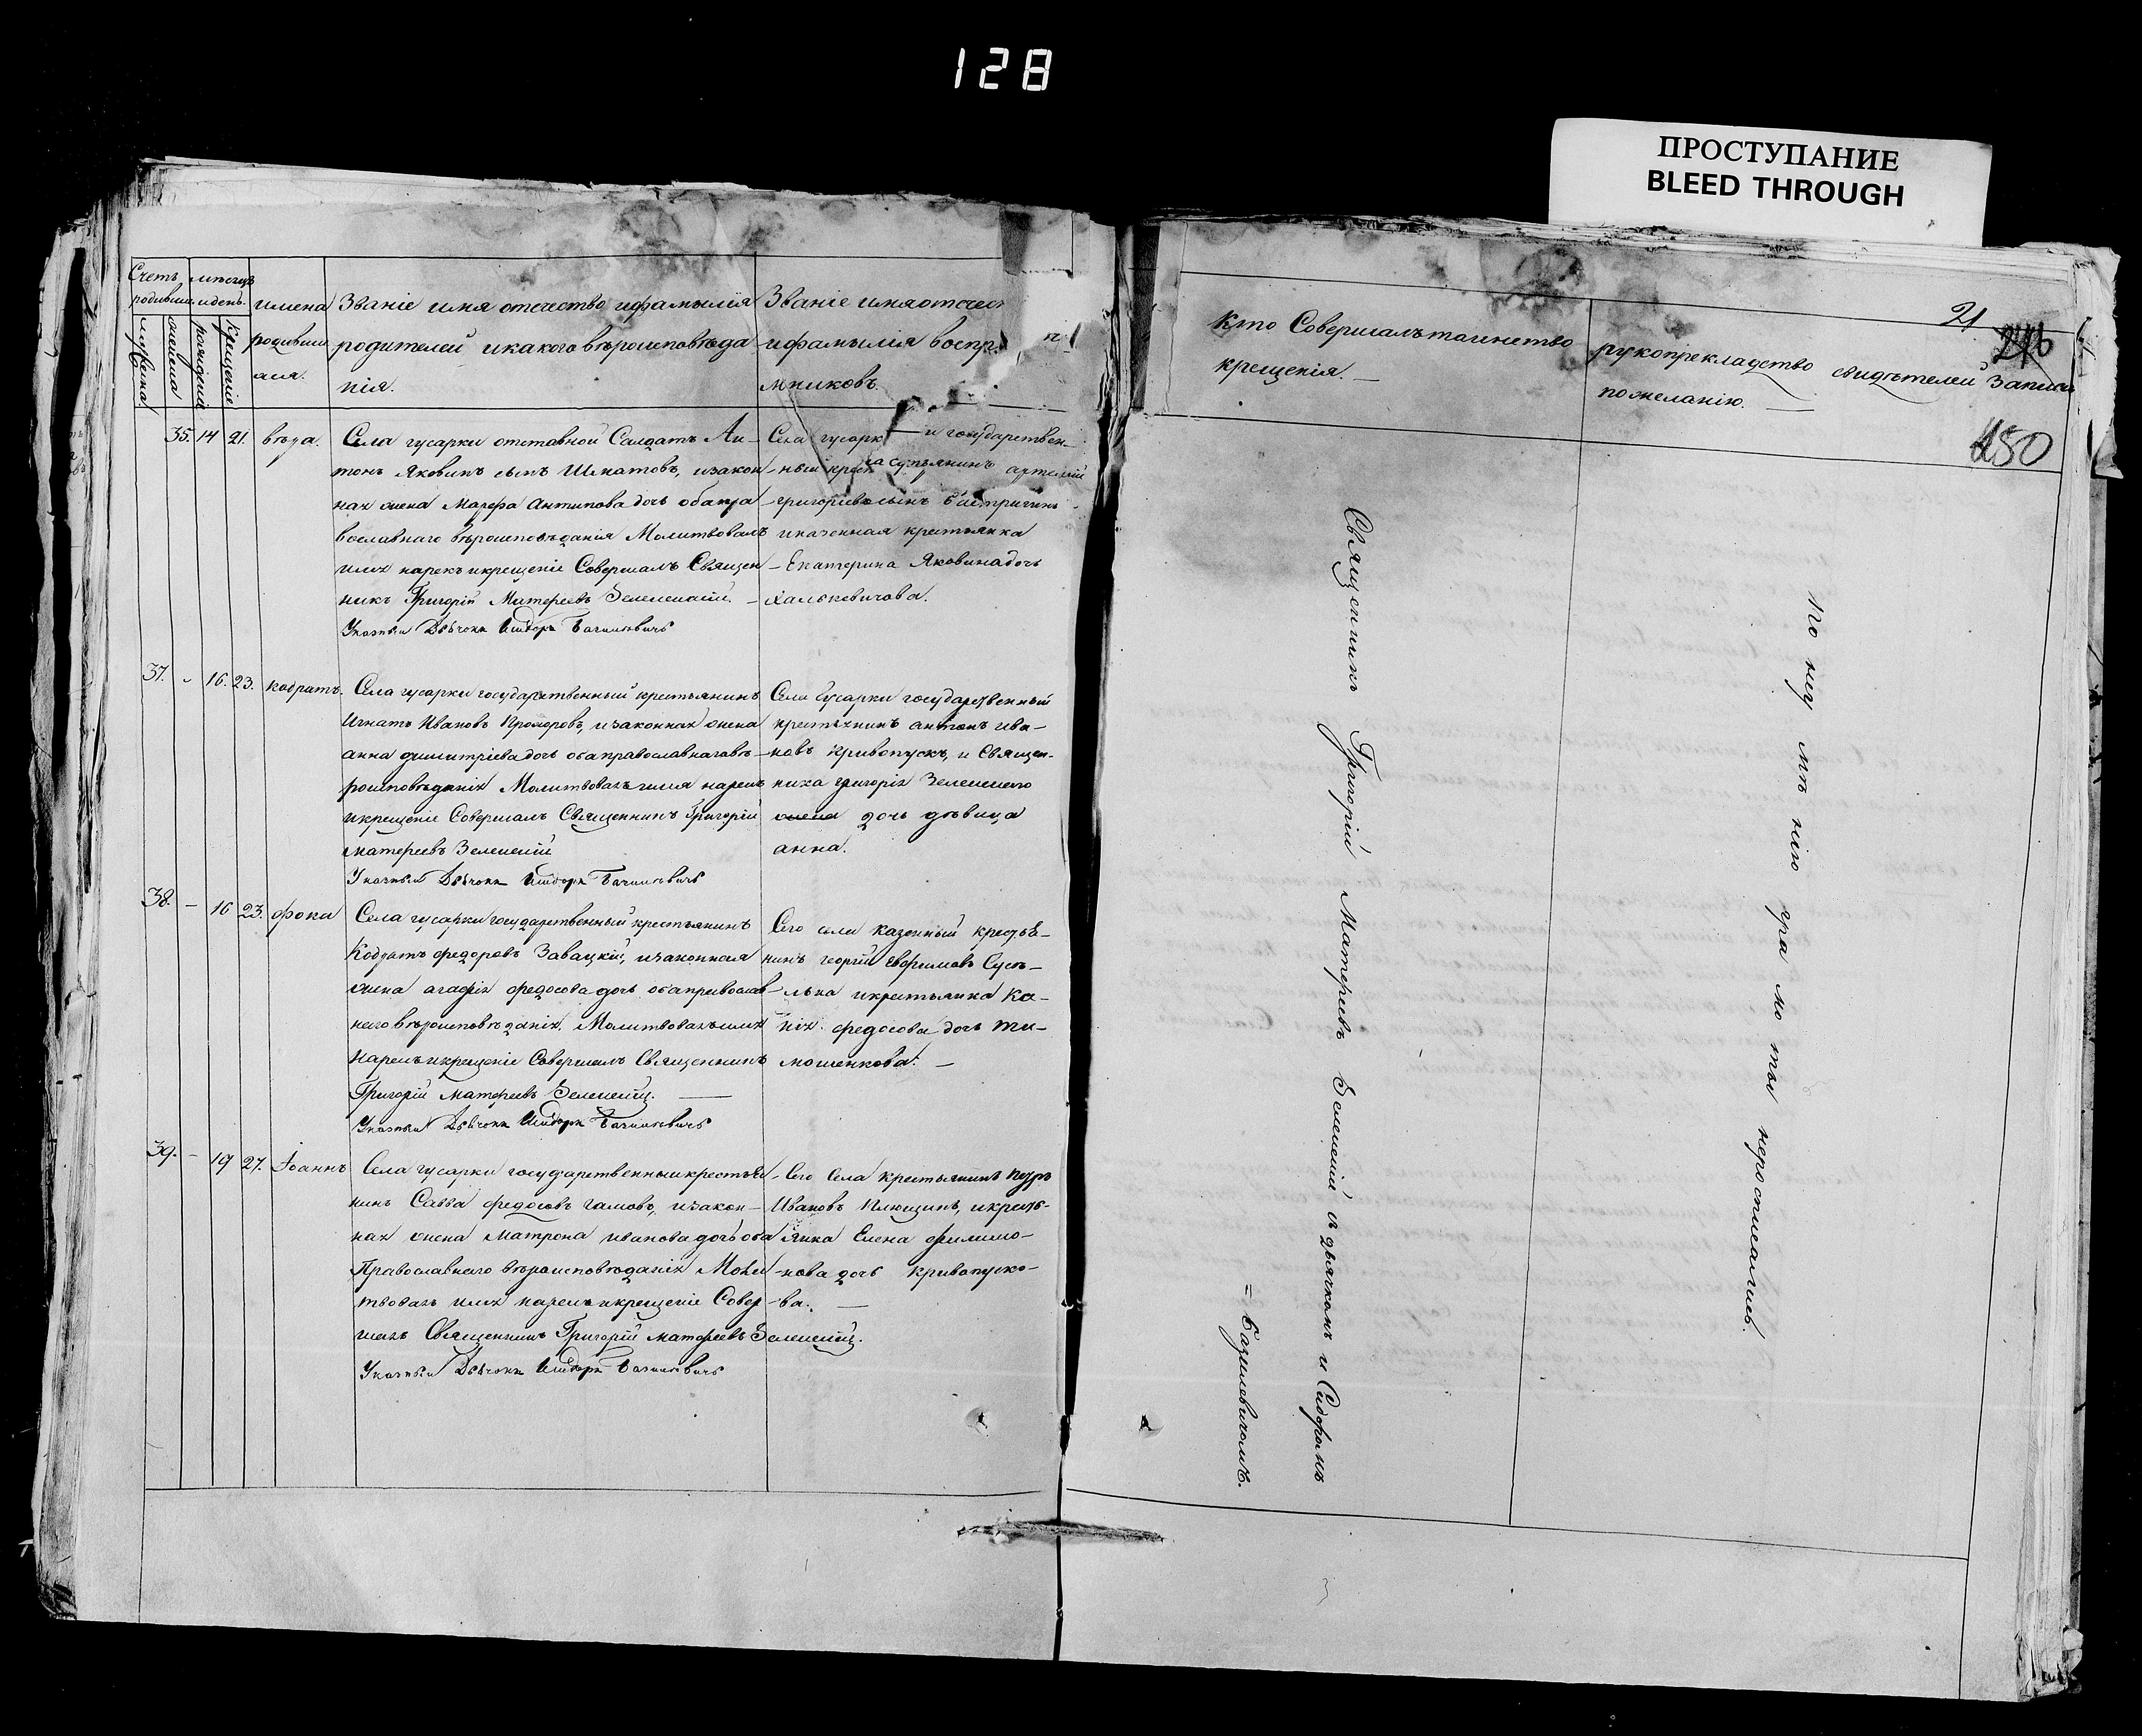 128
ПРОСТУПАНИЕ
BLEED THROUGH
Счетъ
родивши.
мѣсяцъ
и день.
мужеска
женска
рожденія
крещеніе
имена
родивши
хся.
Званіе имя отечество ифамылія
родителей икакого вѣроисповѣда
нія.
Званіе имяотечес
ифамылія воспр.
мниковъ.
35. 14 21. вѣра.
Села гусарки отставной Салдатъ Ан-
тонъ Яковинъ сынъ Шматовъ, изакон
ная жена Марѳа Антипова дочь обапра
вославнаго вѣроисповѣданія Молитвовалъ
имя нарекъ икрещеніе Совершалъ Священ
никъ Григорій Матфеевъ Зеленский.
Указный Дьячокъ Исидоръ Базилевичъ
Села гусарк и государствен-
ный артемій
григориевъсынъ
иказенная крестьянка
Екатерина Яковинадочь
Халькевичова.
37. - 16. 23. кодратъ.
Села гусарки государственный крестьянинъ
Игнатъ Ивановъ Прохоровъ, изаконная жена
анна димитріевадочь обаправославнаговѣ-
роисповѣданія Молитвовалъ имя нарекъ
икрещеніе Совершалъ Священникъ Григорій
матфеевъ Зеленский
Указный Дьячокъ Исидоръ Базилевичъ
Села Гусарки государственный
крестьянинъ антонъ ива-
новъ Кривопускъ, и Священ-
ника григорія Зеленского
жена дочь дѣвица
анна.
38. - 16 23. фока
Села гусарки государственный крестьянинъ
Кодратъ федоровъ Завацкій, изаконная
жена агафія федосова дочь обаправослав
наго вѣроисповѣданія, Молитвовалъ имя
нарекъ икрещеніе Совершалъ Священникъ
Григорій матфеевъ Зеленский.
Указный Дьячокъ Исидоръ Базилевичъ
Сего села казенный крестья-
нинъ георгій Евфимовъ Сусь-
лька икрестьянка Ка-
пія федосова дочь Ти-
мошенкова.
39. - 19 27. Іоаннъ
Села гусарки государственныйкрестья-
нинъ Савва федосовъ гамовъ, изакон-
ная жена матрона ивановадочь оба
Православнаго вѣроисповѣданія Моли
твовалъ имя нарекъ икрещеніе Совер
шалъ Священникъ Григорій матфеевъ Зеленский.
Указный Дьячокъ Исидоръ Базилевичъ
Сего Села крестьянинъ петръ
Ивановъ Плющинъ, икресть-
янка Елена филимо-
нова дочь кривопуско-
ва.
Кто Совершалъ таинство
крещенія.
рукоприкладство свидѣтелей Записи
пожеланію.
21
246
450
Священникъ Григорій Матфеевъ Зеленский сдьячкомъ и Сидоромъ
= Базилевичомъ.
По низу мѣ нію гра мо ты неросписались.